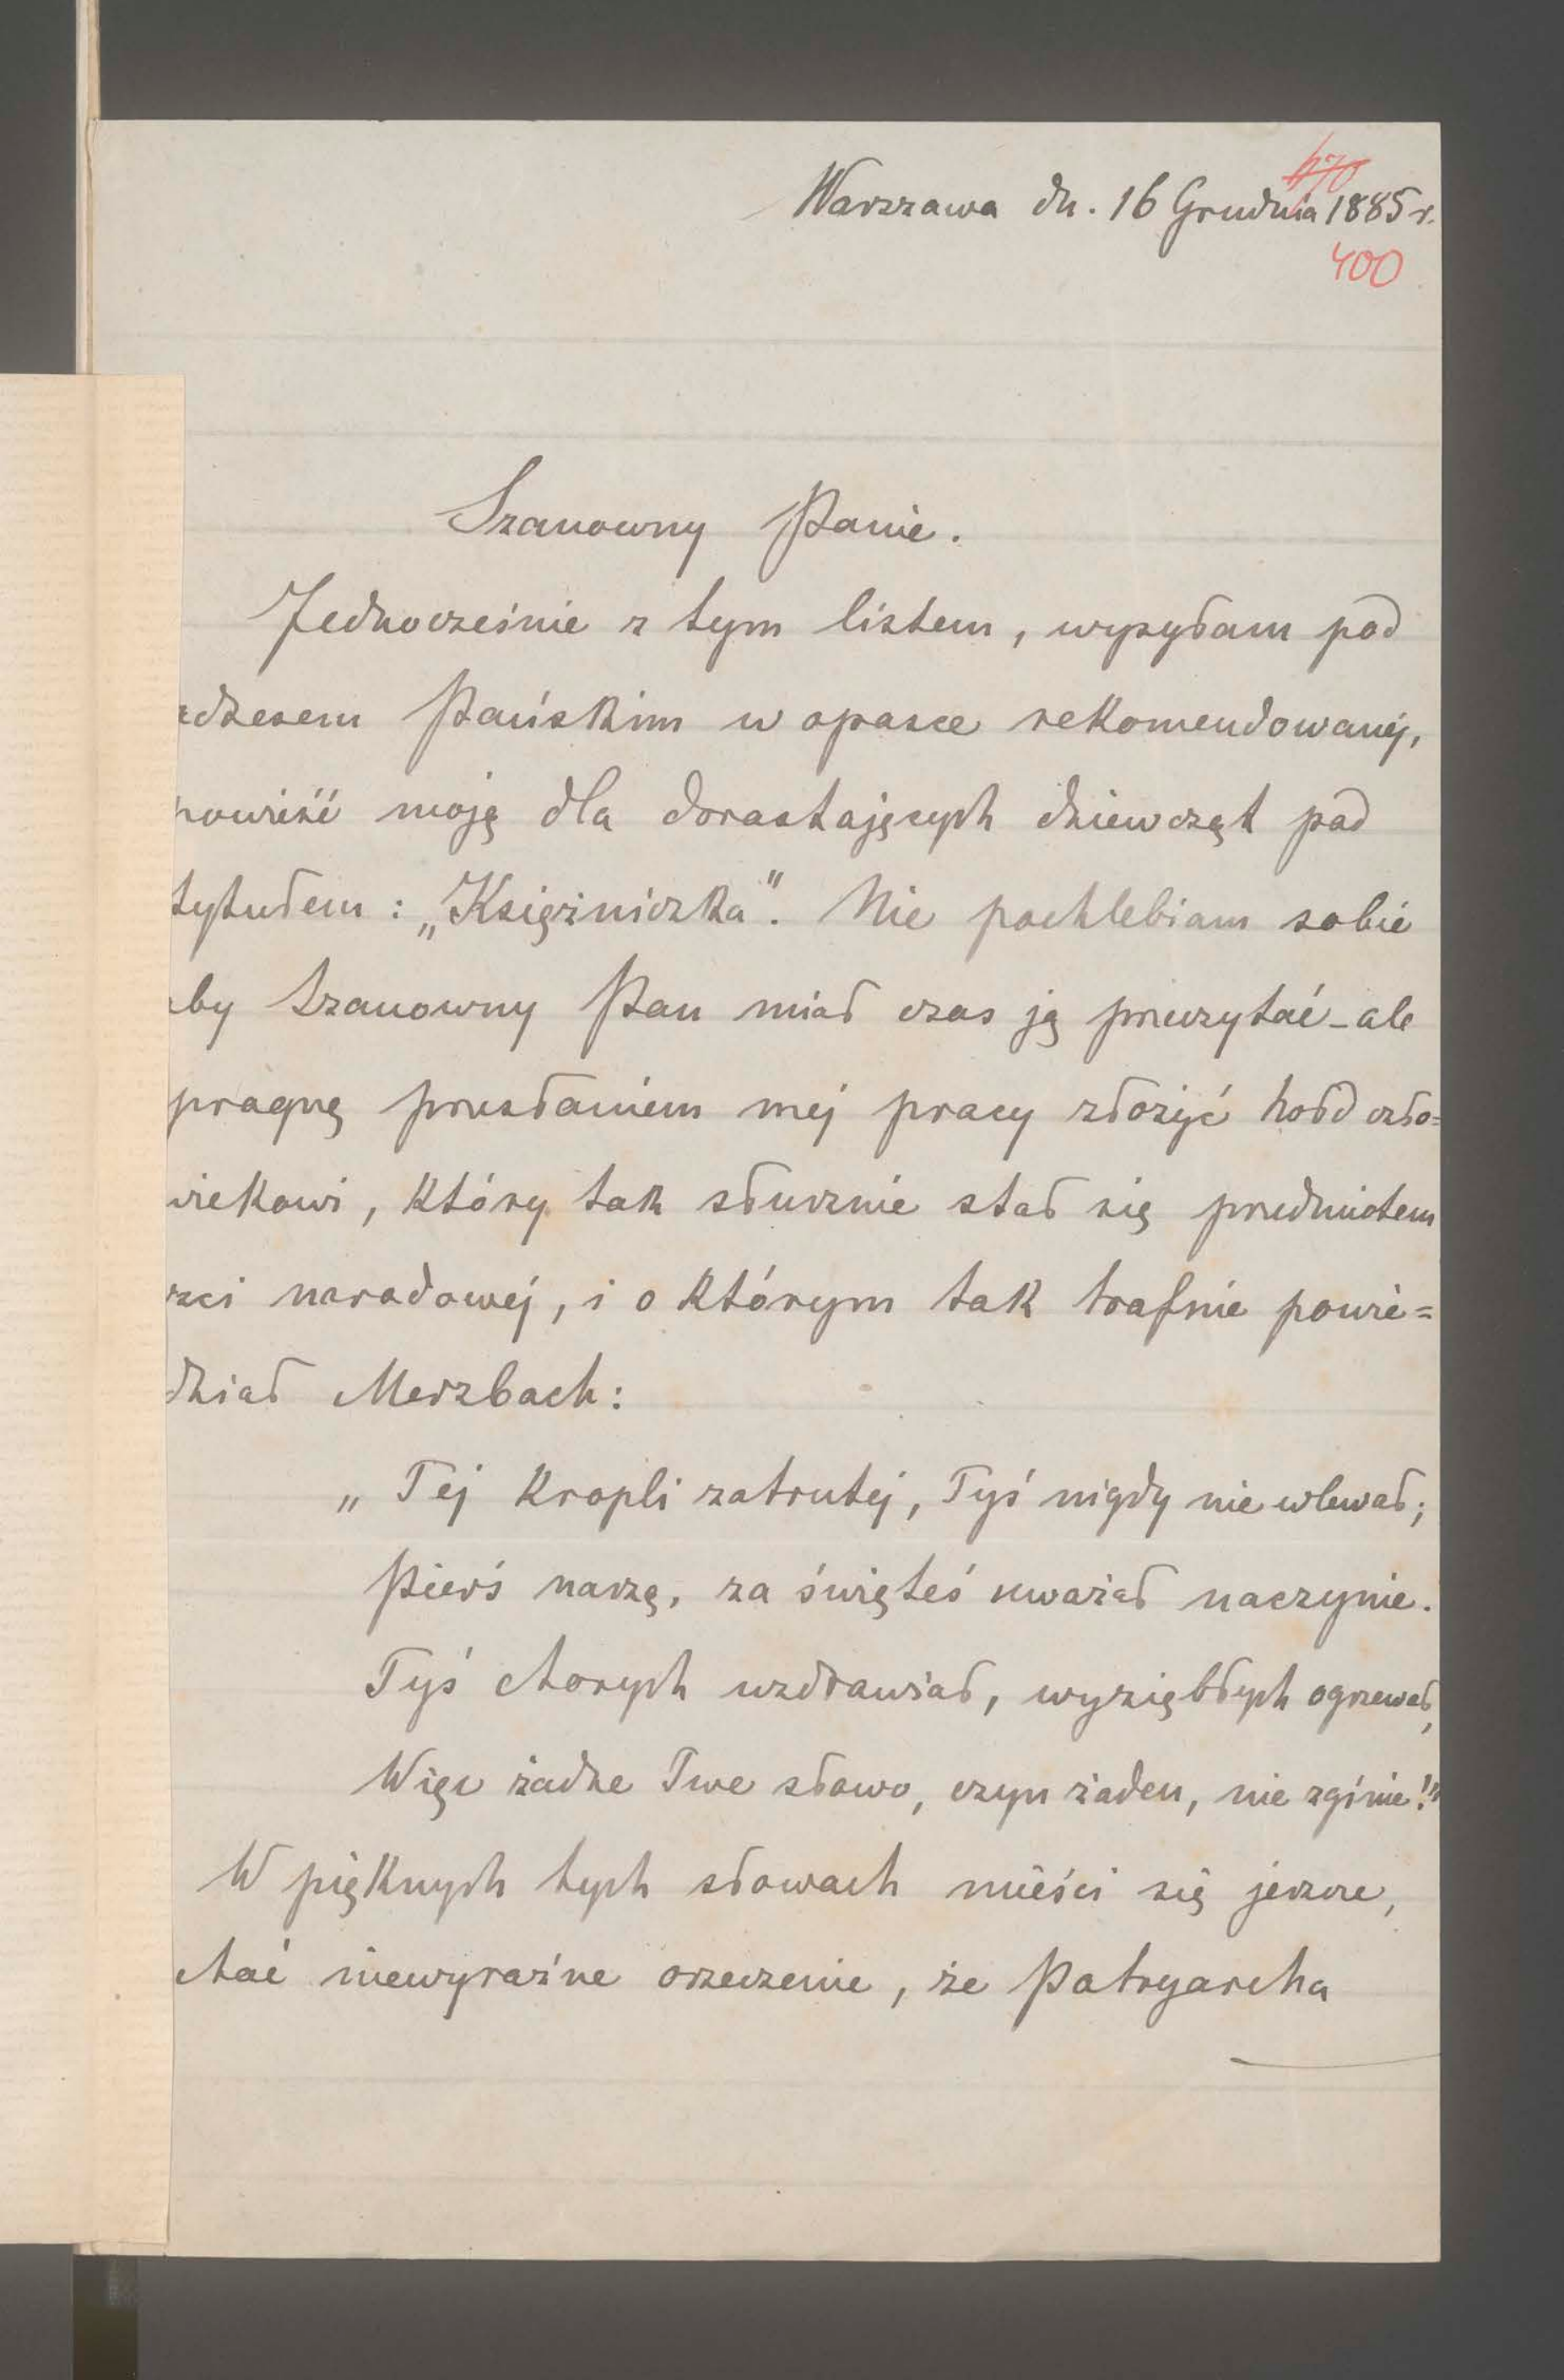 470
Warszawa dn. 16 Grudnia 1885 r.
400
Szanowny Panie.
Jednocześnie z tym listem, wysyłam pod
adresem Pańskim w opasce rekomendowanéj,
powieść moję dla dorastających dziewcząt pod
tytułem: „Księżniczka". Nie pochlebiam sobie
aby Szanowny Pan miał czas ją przeczytać - ale
pragnę przesłaniem mej pracy złożyć hołd czło=
wiekowi, który tak słusznie stał się przedmiotem
czci narodowéj, i o którym tak trafnie powie=
dział Merzbach:
„Tej kropli zatrutéj, Tyś nigdy nie wlewał;
Pierś naszę, za święteś uważał naczynie.
Tyś chorych uzdrawiał, wyziębłych ogrzewał,
Więc żadne Twe słowo, czyn żaden, nie zginie!"
W pięknych tych słowach mieści się jeszcze,
choć niewyraźne orzeczenie, że Patryarcha